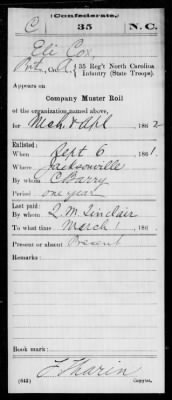 (Confederate.)
C 35 N.C.
Eli Cox
Pvt., Co. A, 35 Reg't North Carolina
Infantry (State Troops).
Appears on
Company Muster Roll
of the organization named above,
for Mch. & Apl, 1862
Enlisted:
When Sept 6, 1861.
Where Jacksonville
By whom C Barry
Period one year
Last paid:
By whom Q. M. Sinclair
To what time March 1, 186
Present or absent Present
Remarks:
Book mark:
F Tharin
(642) Copyist.